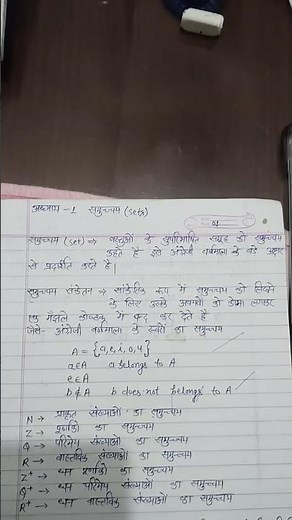 अध्याय - 1 समुच्चय (sets)
समुच्चय (set) ⇒ वस्तुओं के सुपरिभाषित संग्रह को समुच्चय
कहते है इसे अंग्रेजी वर्णमाला के बडे अक्षर
से प्रदर्शित करते है।
समुच्चय संकेतन → सांकेतिक रूप में समुच्चय को लिखने
के लिए उसके अवयवों को कोमा लगाकर
मंझले कोष्ठक में बन्द कर देते है
जैसे- अंग्रेजी वर्णमाला के स्वरों का समुच्चय
A = {a, e, i, o, u}
a∈A a belongs to A
e∈A
b∉A b does not belongs to A
N → प्राकृत संख्याओं का समुच्चय
Z → पूर्णांको का समुच्चय
Q → परिमेय संख्याओं का समुच्चय
R → वास्तविक संख्याओं का समुच्चय
Z⁺ → धन पूर्णांको का समुच्चय
Q⁺ → धन परिमेय संख्याओं का समुच्चय
R⁺ → धन वास्तविक संख्याओं का समुच्चय